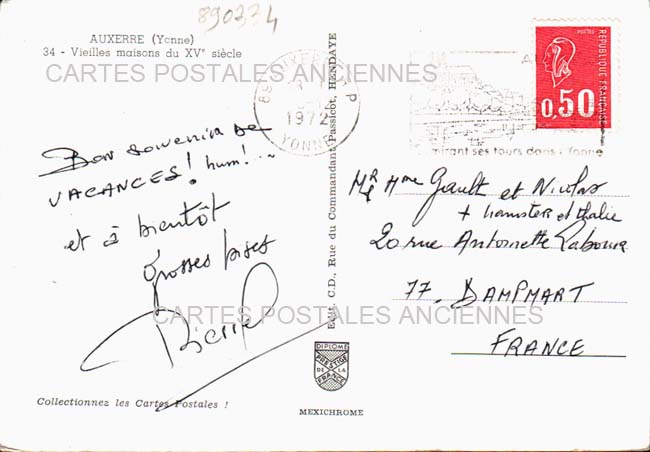 890334
AUXERRE (Yonne)
34 - Vieilles maisons du XVe siècle
CARTES POSTALES ANCIENNES
Bon souvenir de
VACANCES! hum!...
et à bientôt
Grosses bises
Pierre
CARTES POSTALES ANCIENNES
Collectionnez les Cartes Postales !
Edit. C.D., Rue du Commandant Passicot, HENDAYE
DIPLOME
PRESTIGE
DE LA
FRANCE
MEXICHROME
89 AUXERRE
1972
YONNE
mirant ses tours dans l'Yonne
POSTES
REPUBLIQUE FRANÇAISE
0,50
Mr & Mme Gault et Nicolas
+ hamsters et thalie
20 rue Antoinette
77. DAMPMART
FRANCE